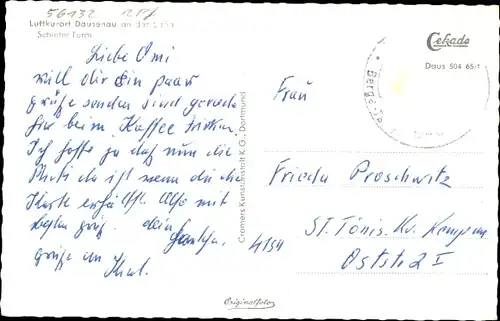 56132
Luftkurort Dausenau an der Lahn
Schiefer Turm
Cekade
Daus 504 65/1
Liebe Omi
will dir ein paar
grüße senden sind gerade
hier beim Kaffee trinken.
Ich hoffe ja daß nun die
da ist wenn du die
Karte erhälst. Also mit
besten grüß. dein
grüße an
Cramers Kunstanstalt K.G., Dortmund
Frau
Frieda Proschwitz
4154
St. Tönis. Kr. Kempen
Oststr. 2 I
Originalfoto